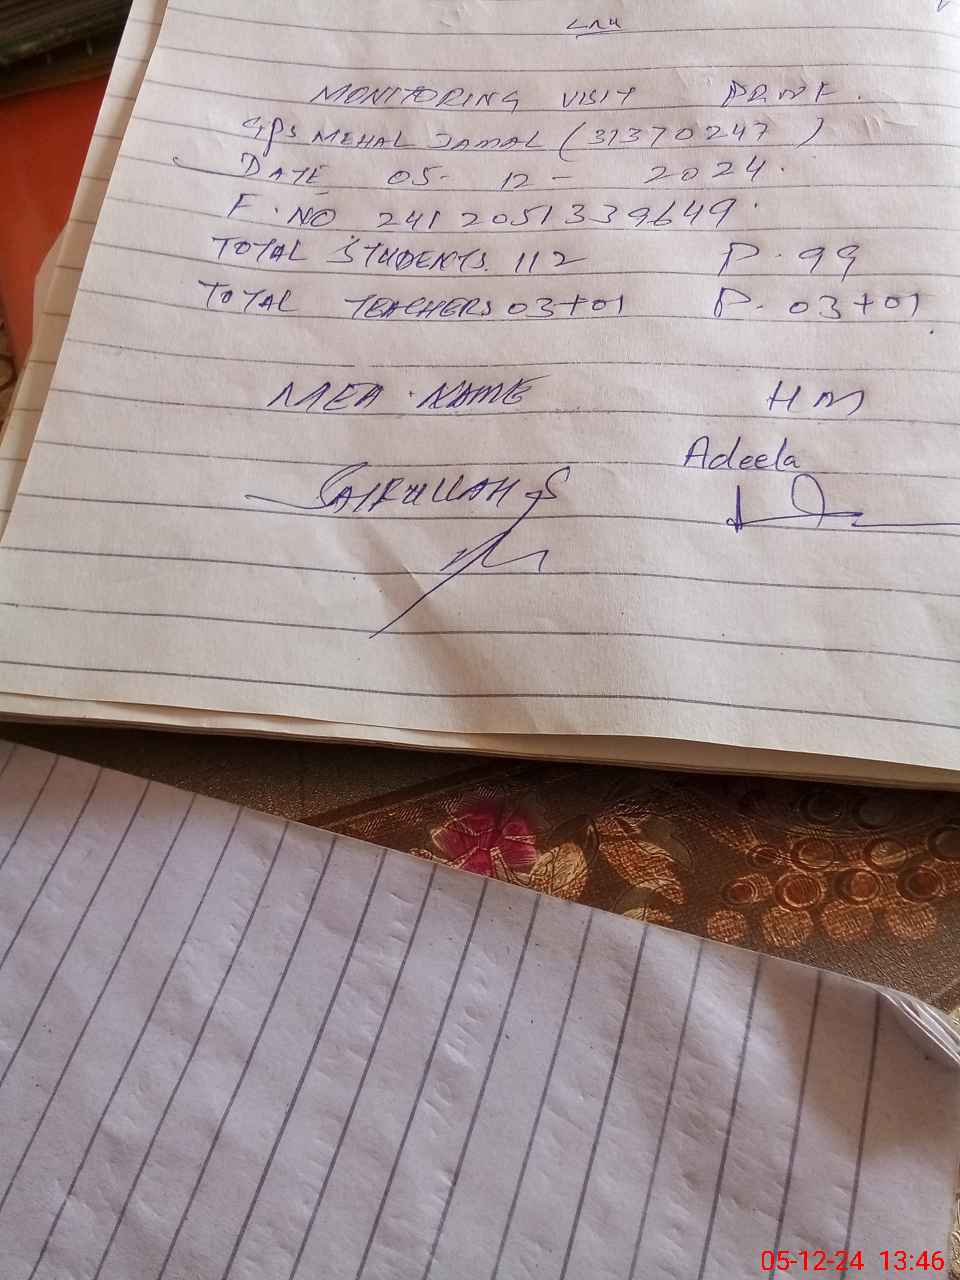 MONITORING VISIT PROOF.
GPS MEHAL JAMAL (31370247)
DATE 05-12-2024.
F.NO 2412051339649.
TOTAL STUDENTS. 112 P.99
TOTAL TEACHERS 03+01 P. 03+01
MEA. NAME HM
SAIFULLAH S Adeela
05-12-24 13:46